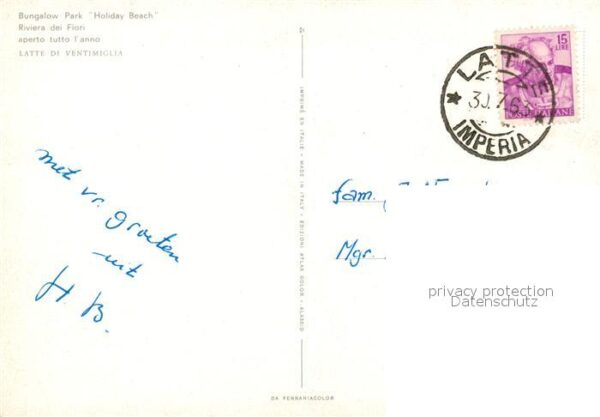 Bungalow Park "Holiday Beach"
Riviera dei Fiori
aperto tutto l'anno
LATTE DI VENTIMIGLIA
15
LIRE
POSTE ITALIANE
LATTE
30.7.63
IMPERIA
met vr. groeten
uit
H B.
IMPRIMÉ EN ITALIE - MADE IN ITALY - EDIZIONI ATLAS COLOR - ALASSIO
fam.
Mgr.
privacy protection
Datenschutz
DA FERRANIACOLOR